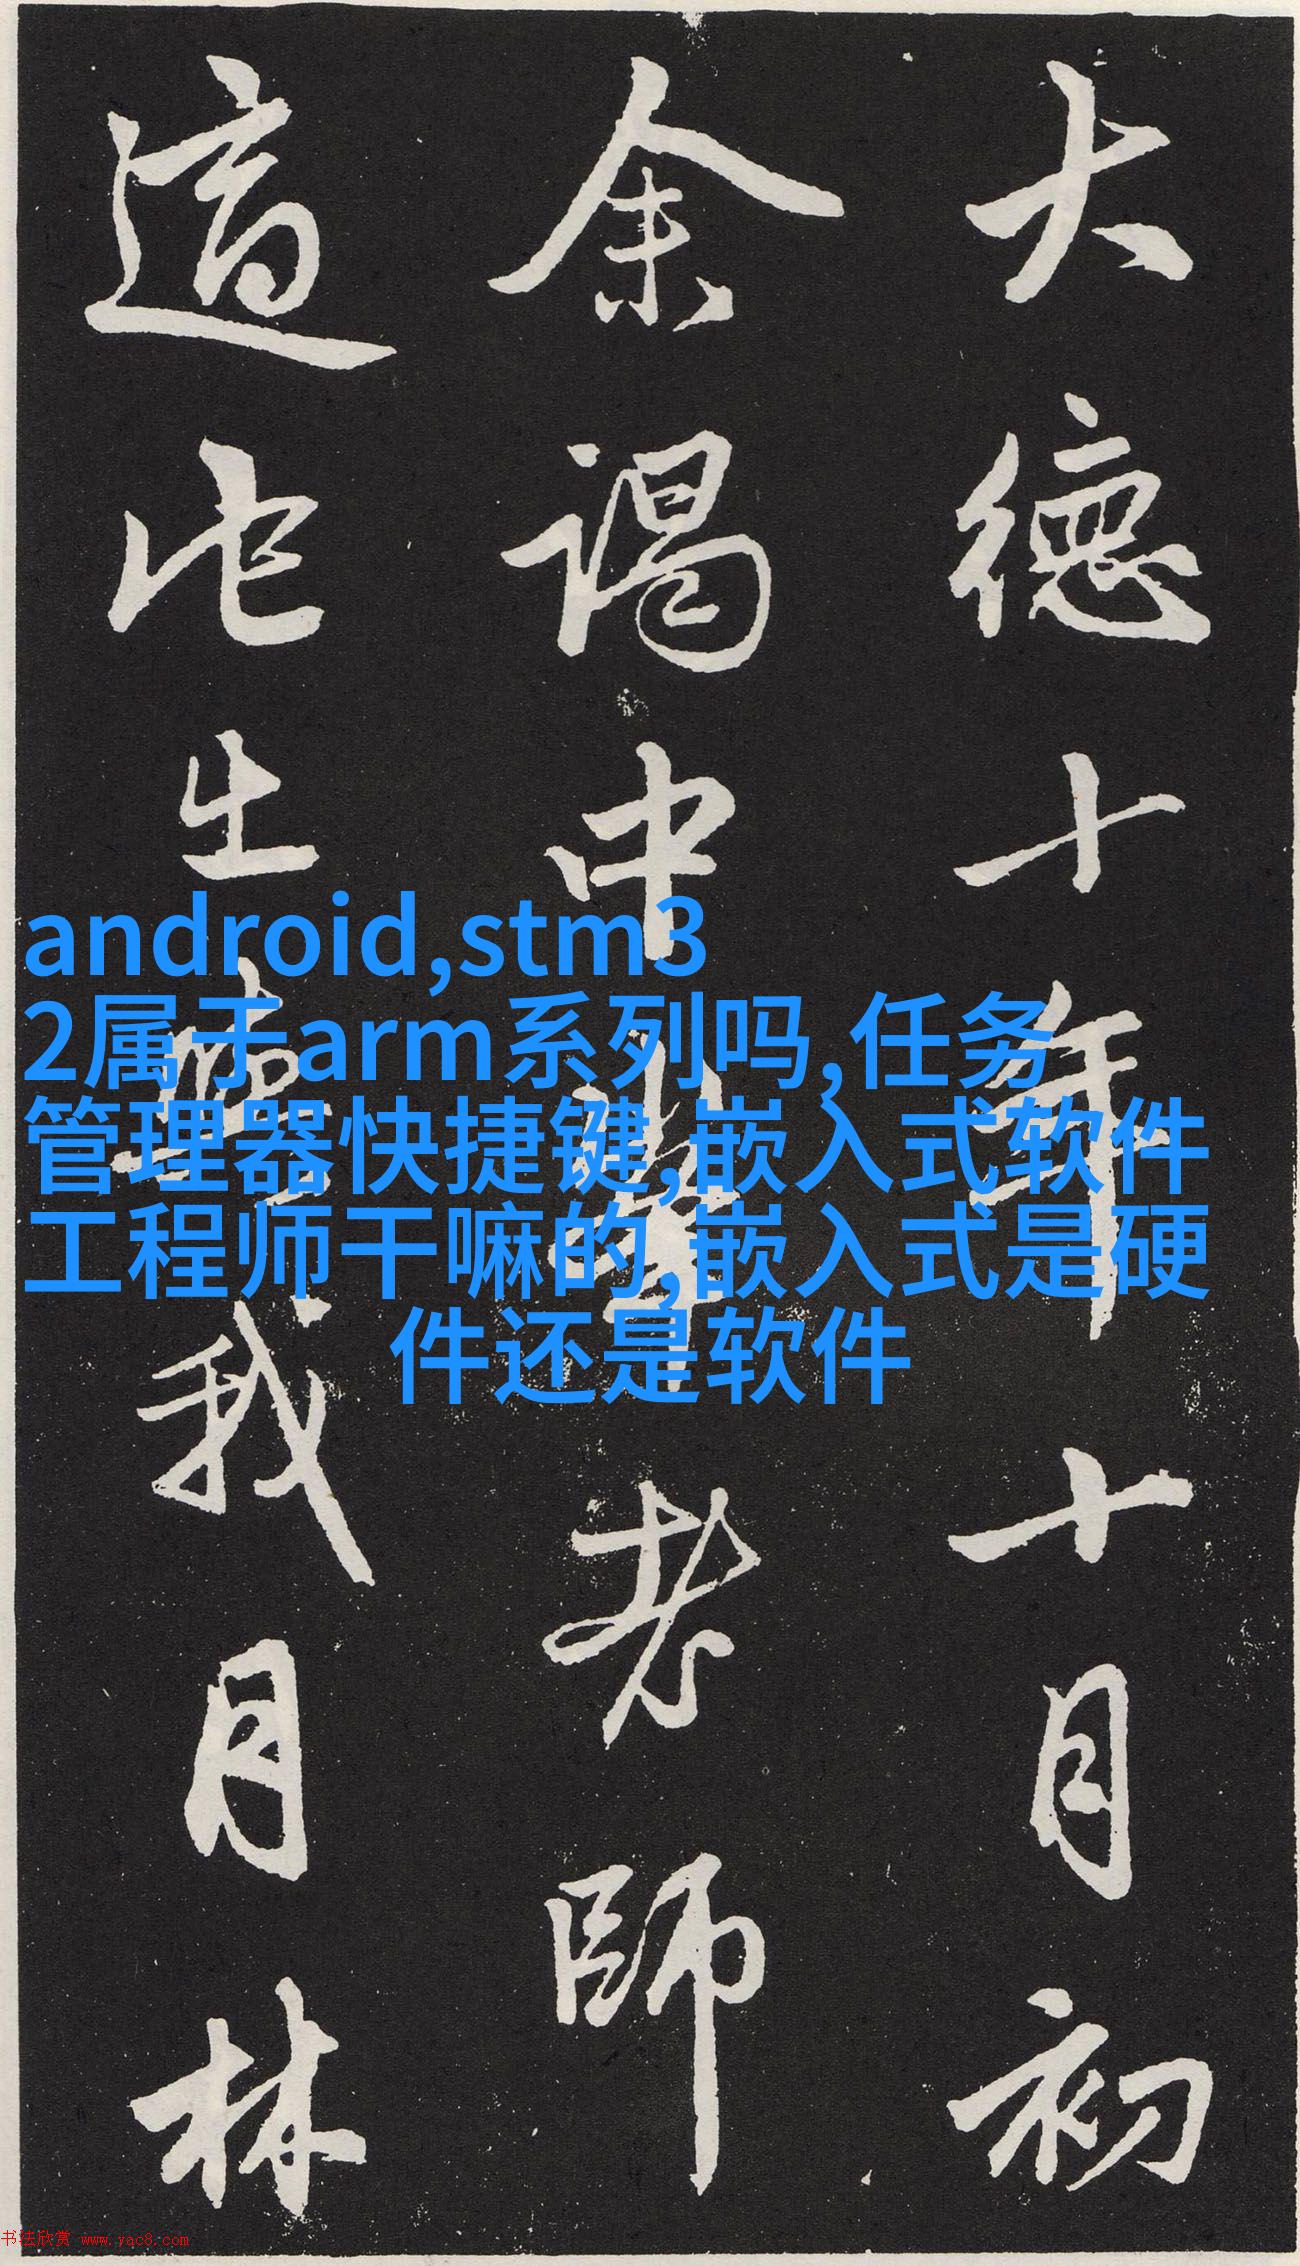 大德十年十月初
余謁中峯老師
适此出塵我月林
android,stm3
2属于arm系列吗,任务
管理器快捷键,嵌入式软件
工程师干嘛的,嵌入式是硬
件还是软件
书法欣赏 www.yac8.com